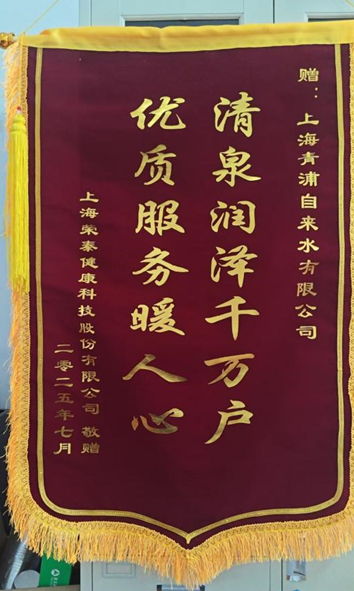 赠：上海青浦自来水有限公司
清泉润泽千万户
优质服务暖人心
上海荣泰健康科技股份有限公司 敬赠
二零二五年七月